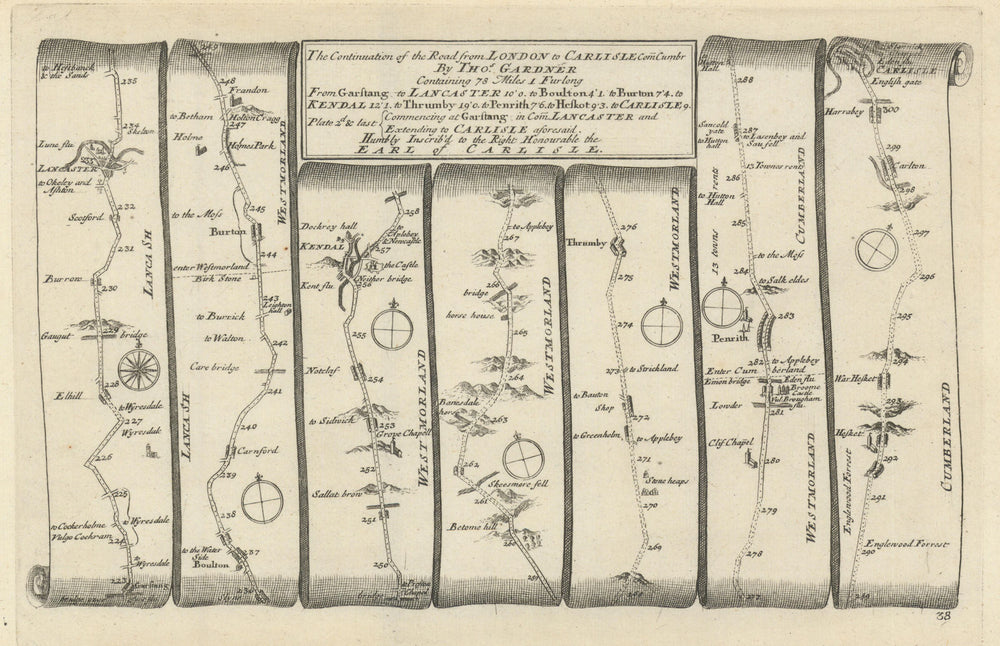 The Continuation of the Road from LONDON to CARLISLE, Com Cumbr
By THOs. GARDNER
Containing 78 Miles 1 Furlong
From Garstang to LANCASTER 10'0. to Boulton 4'1. to Burton 7'4. to
KENDAL 12'1. to Thrumby 19'0. to Penrith 7'6. to Hesket 9'3. to CARLISLE 9.
Plate 2d & last Commencing at Garstang in Com LANCASTER and
Extending to CARLISLE aforesaid.
Humbly Inscrib'd to the Right Honourable the
EARL of CARLISLE.
to Hestbanck
& the Sands
235
234
Skelton
Lune flu
LANCASTER
233
to Okeley and
Ashton
232
Scotford
231
LANCA SH
Burrow
230
229
Gaugut bridge
228
Elhill
to Wyresdale
227
Wyresdale
226
225
to Cockerholme
Vulgo Cockram
to Wyresdale
224
to Wyresdale
223
249
248
Frandon
to Betham
Holton Cragg
247
Holme
Holmes Park
246
WESTMORLAND
245
to the Moss
Burton
244
enter Westmorland
Birk Stone
243
Leighton
hall
to Burwick
to Walton
242
Care bridge
241
LANCA SH
240
Carnford
239
238
to the Water
Side
237
Boulton
236
258
Dockrey hall
to Apleby
& Newcastle
KENDAL
257
the Castle
Neither bridge
Kent flu
256
255
Notclif
254
WESTMORLAND
to Sidwick
253
Grove Chapell
252
Sallat brow
251
250
to Apleby
267
266
bridge
horse house
265
WESTMORLAND
264
Banesdale
horse
263
262
Skeesmore fell
261
Betome hill
260
259
WESTMORLAND
Thrumby
276
275
274
273
to Strickland
to Bauton
Shop
272
to Greenholm
to Appleby
271
Stone heaps
270
269
268
to Hutton
Hall
288
Sancold
yate
to Hutton
hall
287
to Lasenboy and
Saufell
13 Townes rents
286
to Hutton
Hall
285
13 towns rents
CUMBERLAND
to the Moss
284
to Salkeldes
283
Penrith
282
to Appleby
Enter Cumberland
Emon bridge
Eden flu
Broome
Castle
Vul. Brougham
Lowder flu
281
Clif Chapel
280
WESTMORLAND
279
278
277
to Stanwick
Eden flu
CARLISLE
English gate
300
Harraboy
299
Carlton
298
297
296
295
294
War. Hesket
293
Hesket
292
CUMBERLAND
291
Englewood Forrest
Englewood Forrest
290
289
38